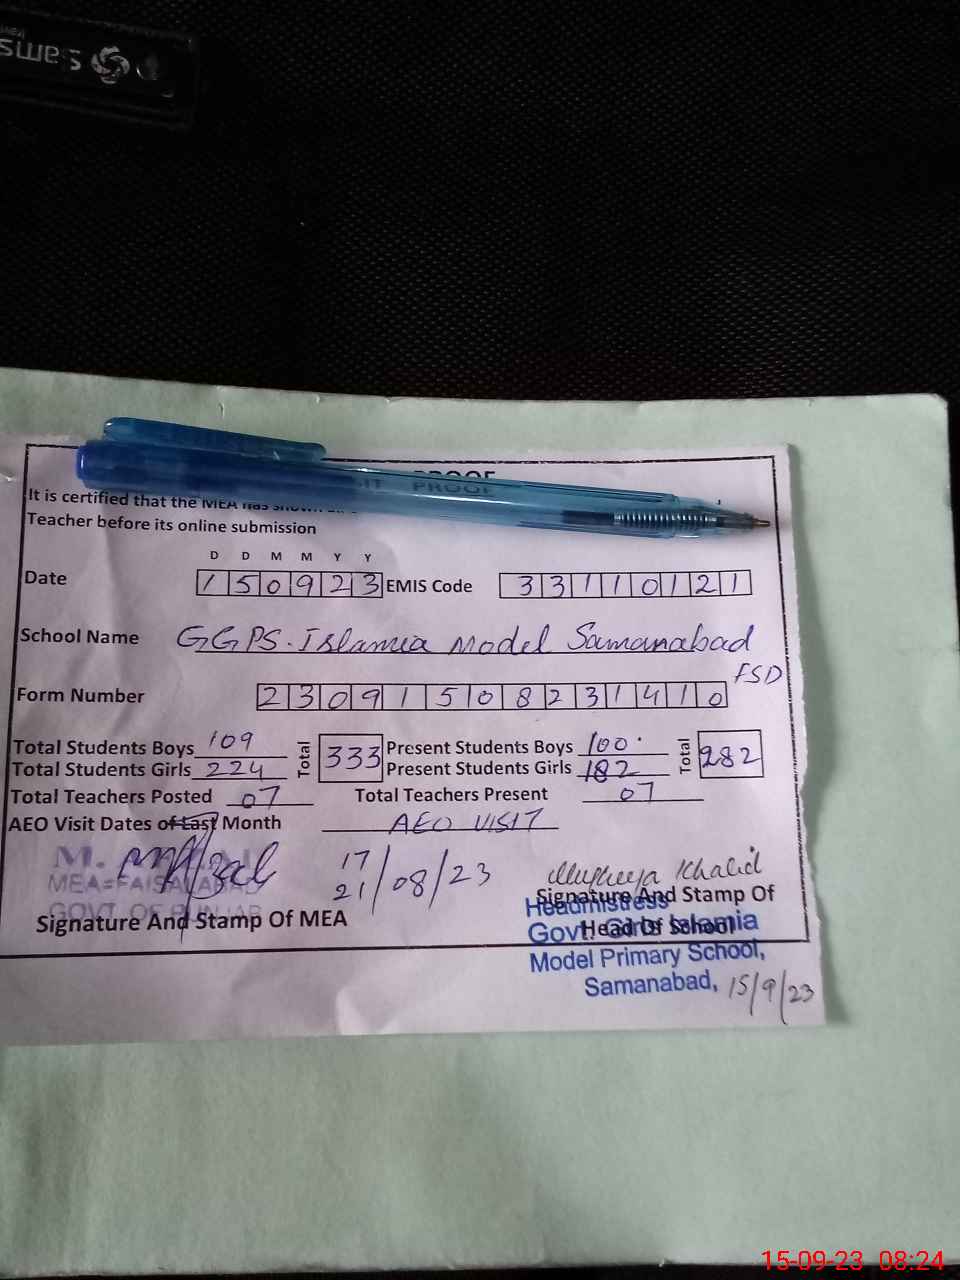 Sams
PROOF
SIT PROOF
It is certified that the MEA has shown
Teacher before its online submission
D D M M Y Y
Date 150923 EMIS Code 33110121
School Name GGPS. Islamia Model Samanabad
FSD
Form Number 23091508231410
Total Students Boys 109 Total 333 Present Students Boys 100 Total 282
Total Students Girls 224 Present Students Girls 182
Total Teachers Posted 07 Total Teachers Present 07
AEO Visit Dates of Last Month AEO VISIT
17
21/08/23
M.
MEA=FAISALABAD
GOVT. OF PUNJAB
Signature And Stamp Of MEA
Khalid
Signature And Stamp Of
Head Of School
Headmistress
Govt. Girls Islamia
Model Primary School,
Samanabad, 15/9/23
15-09-23 08:24